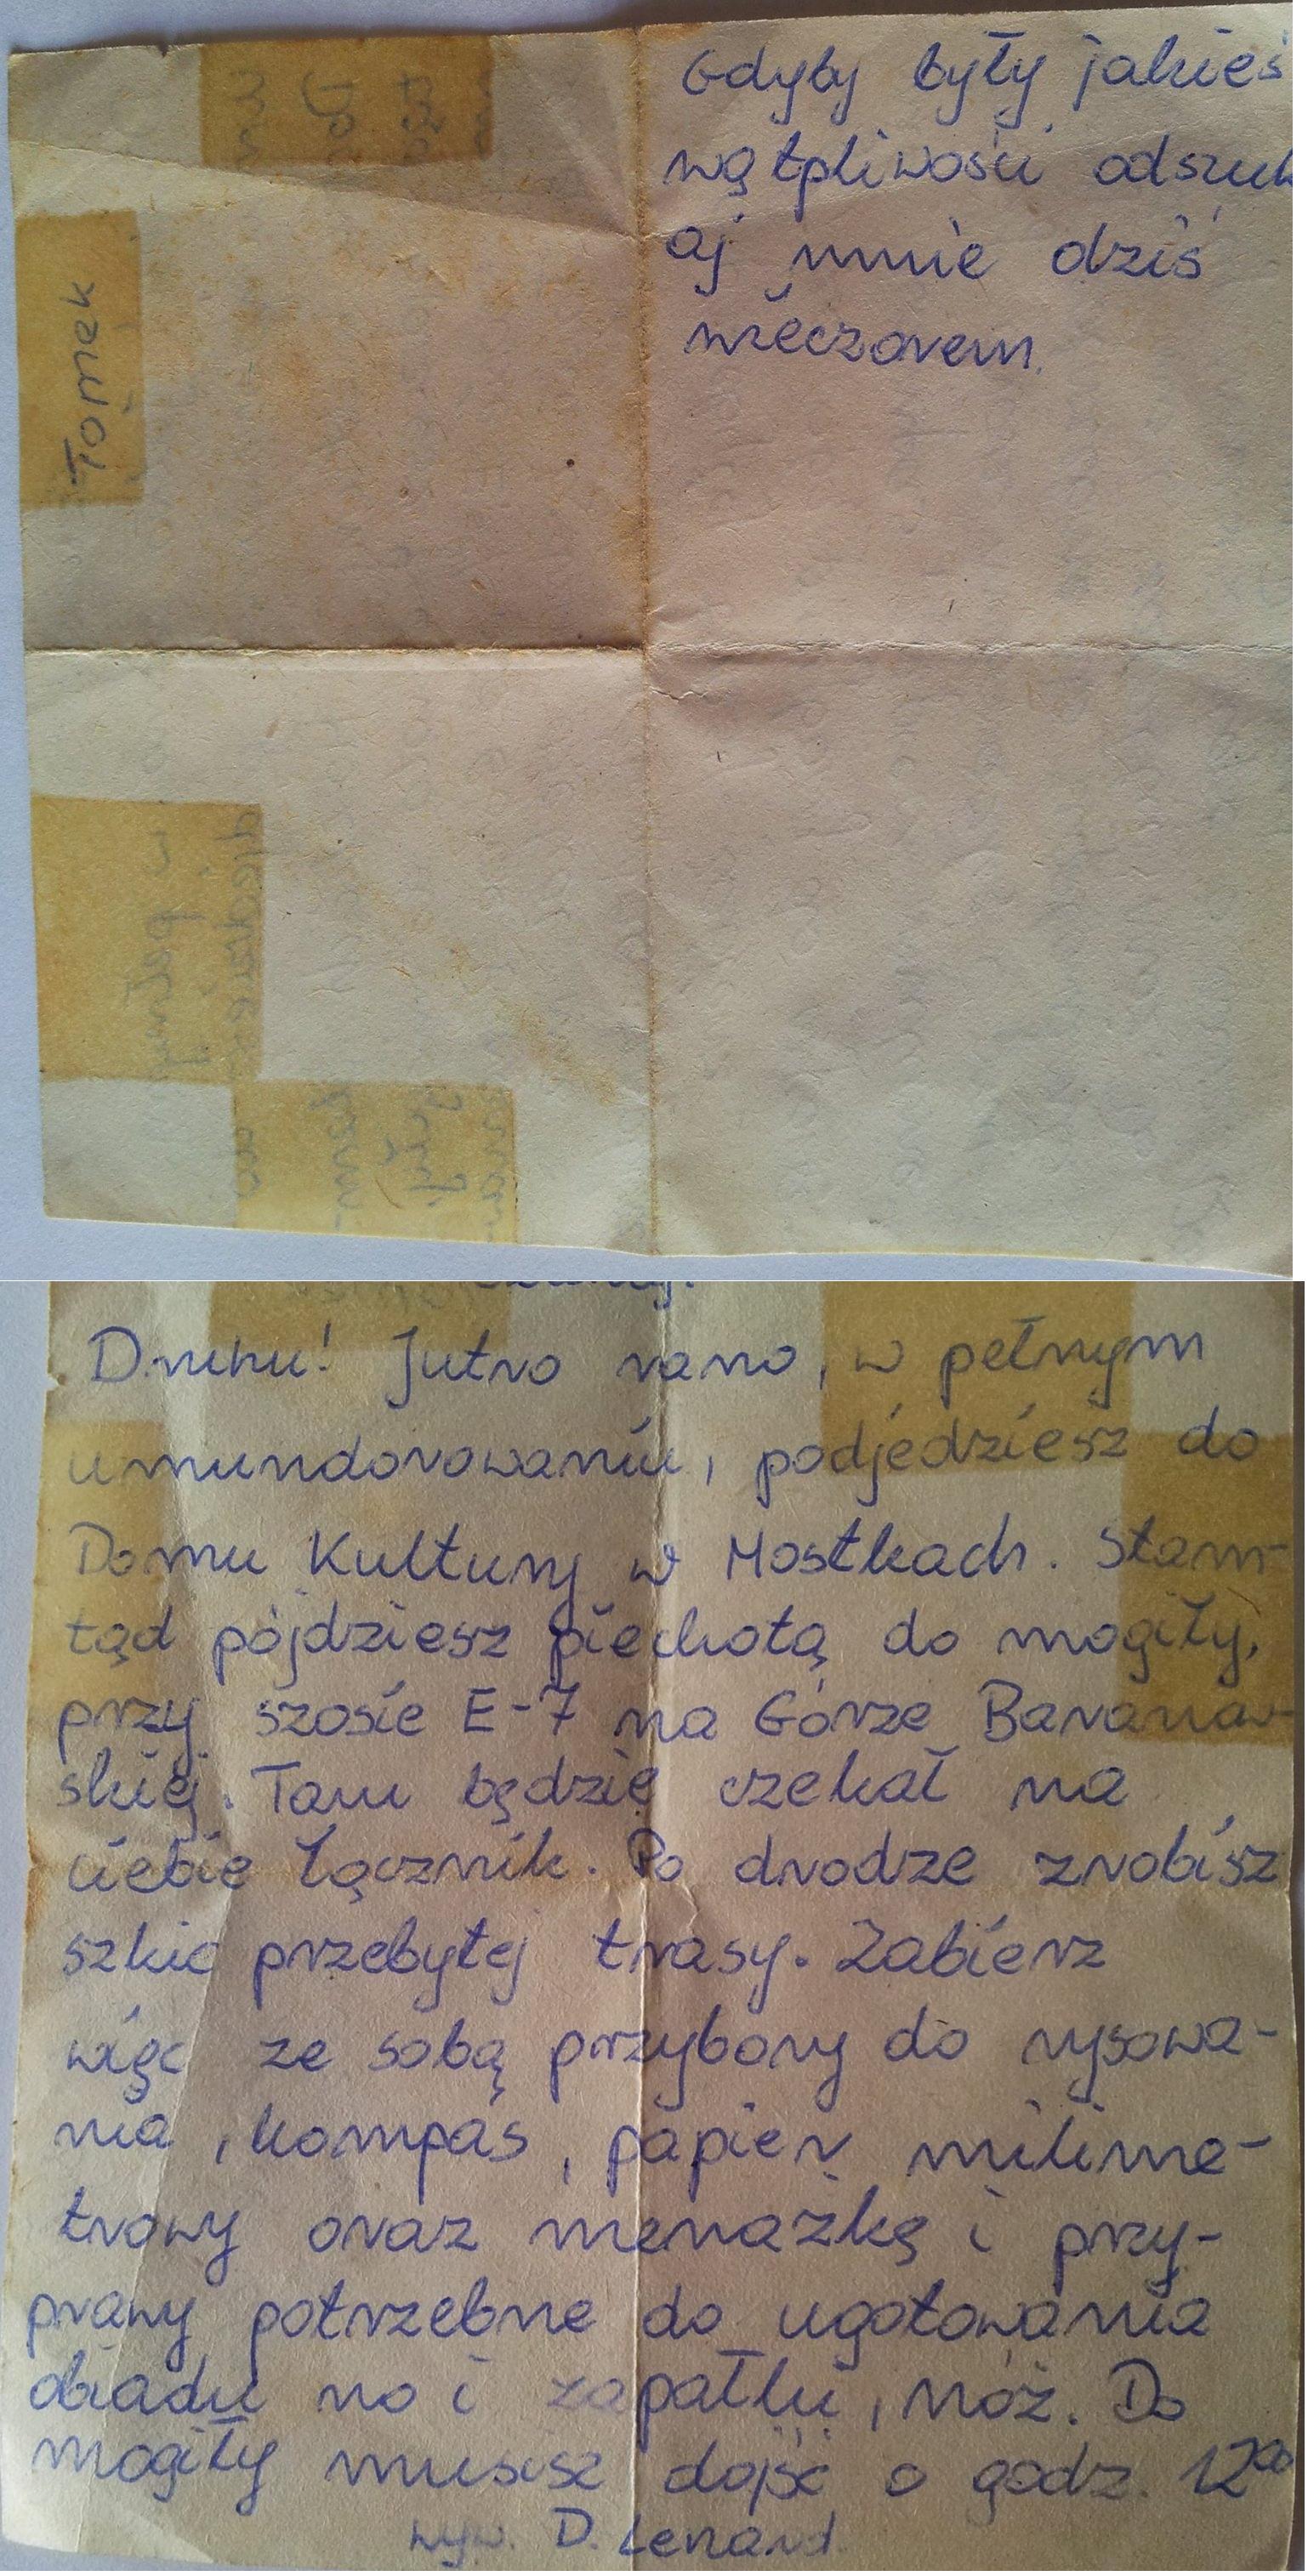 Gdyby były jakieś
wątpliwości odszuk
aj mnie dziś
wieczorem.
Tomek
Druhu! Jutro rano, w pełnym
umundorowaniu, podjedziesz do
Domu Kultury w Mostkach. Stam-
tąd pójdziesz piechotą do mogiły,
przy szosie E-7 na Górze Baranow-
skiej. Tam będzie czekał na
ciebie łącznik. Po drodze zrobisz
szkic przebytej trasy. Zabierz
więc ze sobą przybory do rysowa-
nia, kompas, papier milime-
trowy oraz menażkę i przy-
prawy potrzebne do ugotowania
obiadu no i zapałki, nóż. Do
mogiły musisz dojść o godz. 12⁰⁰
wyw. D. Lenard.